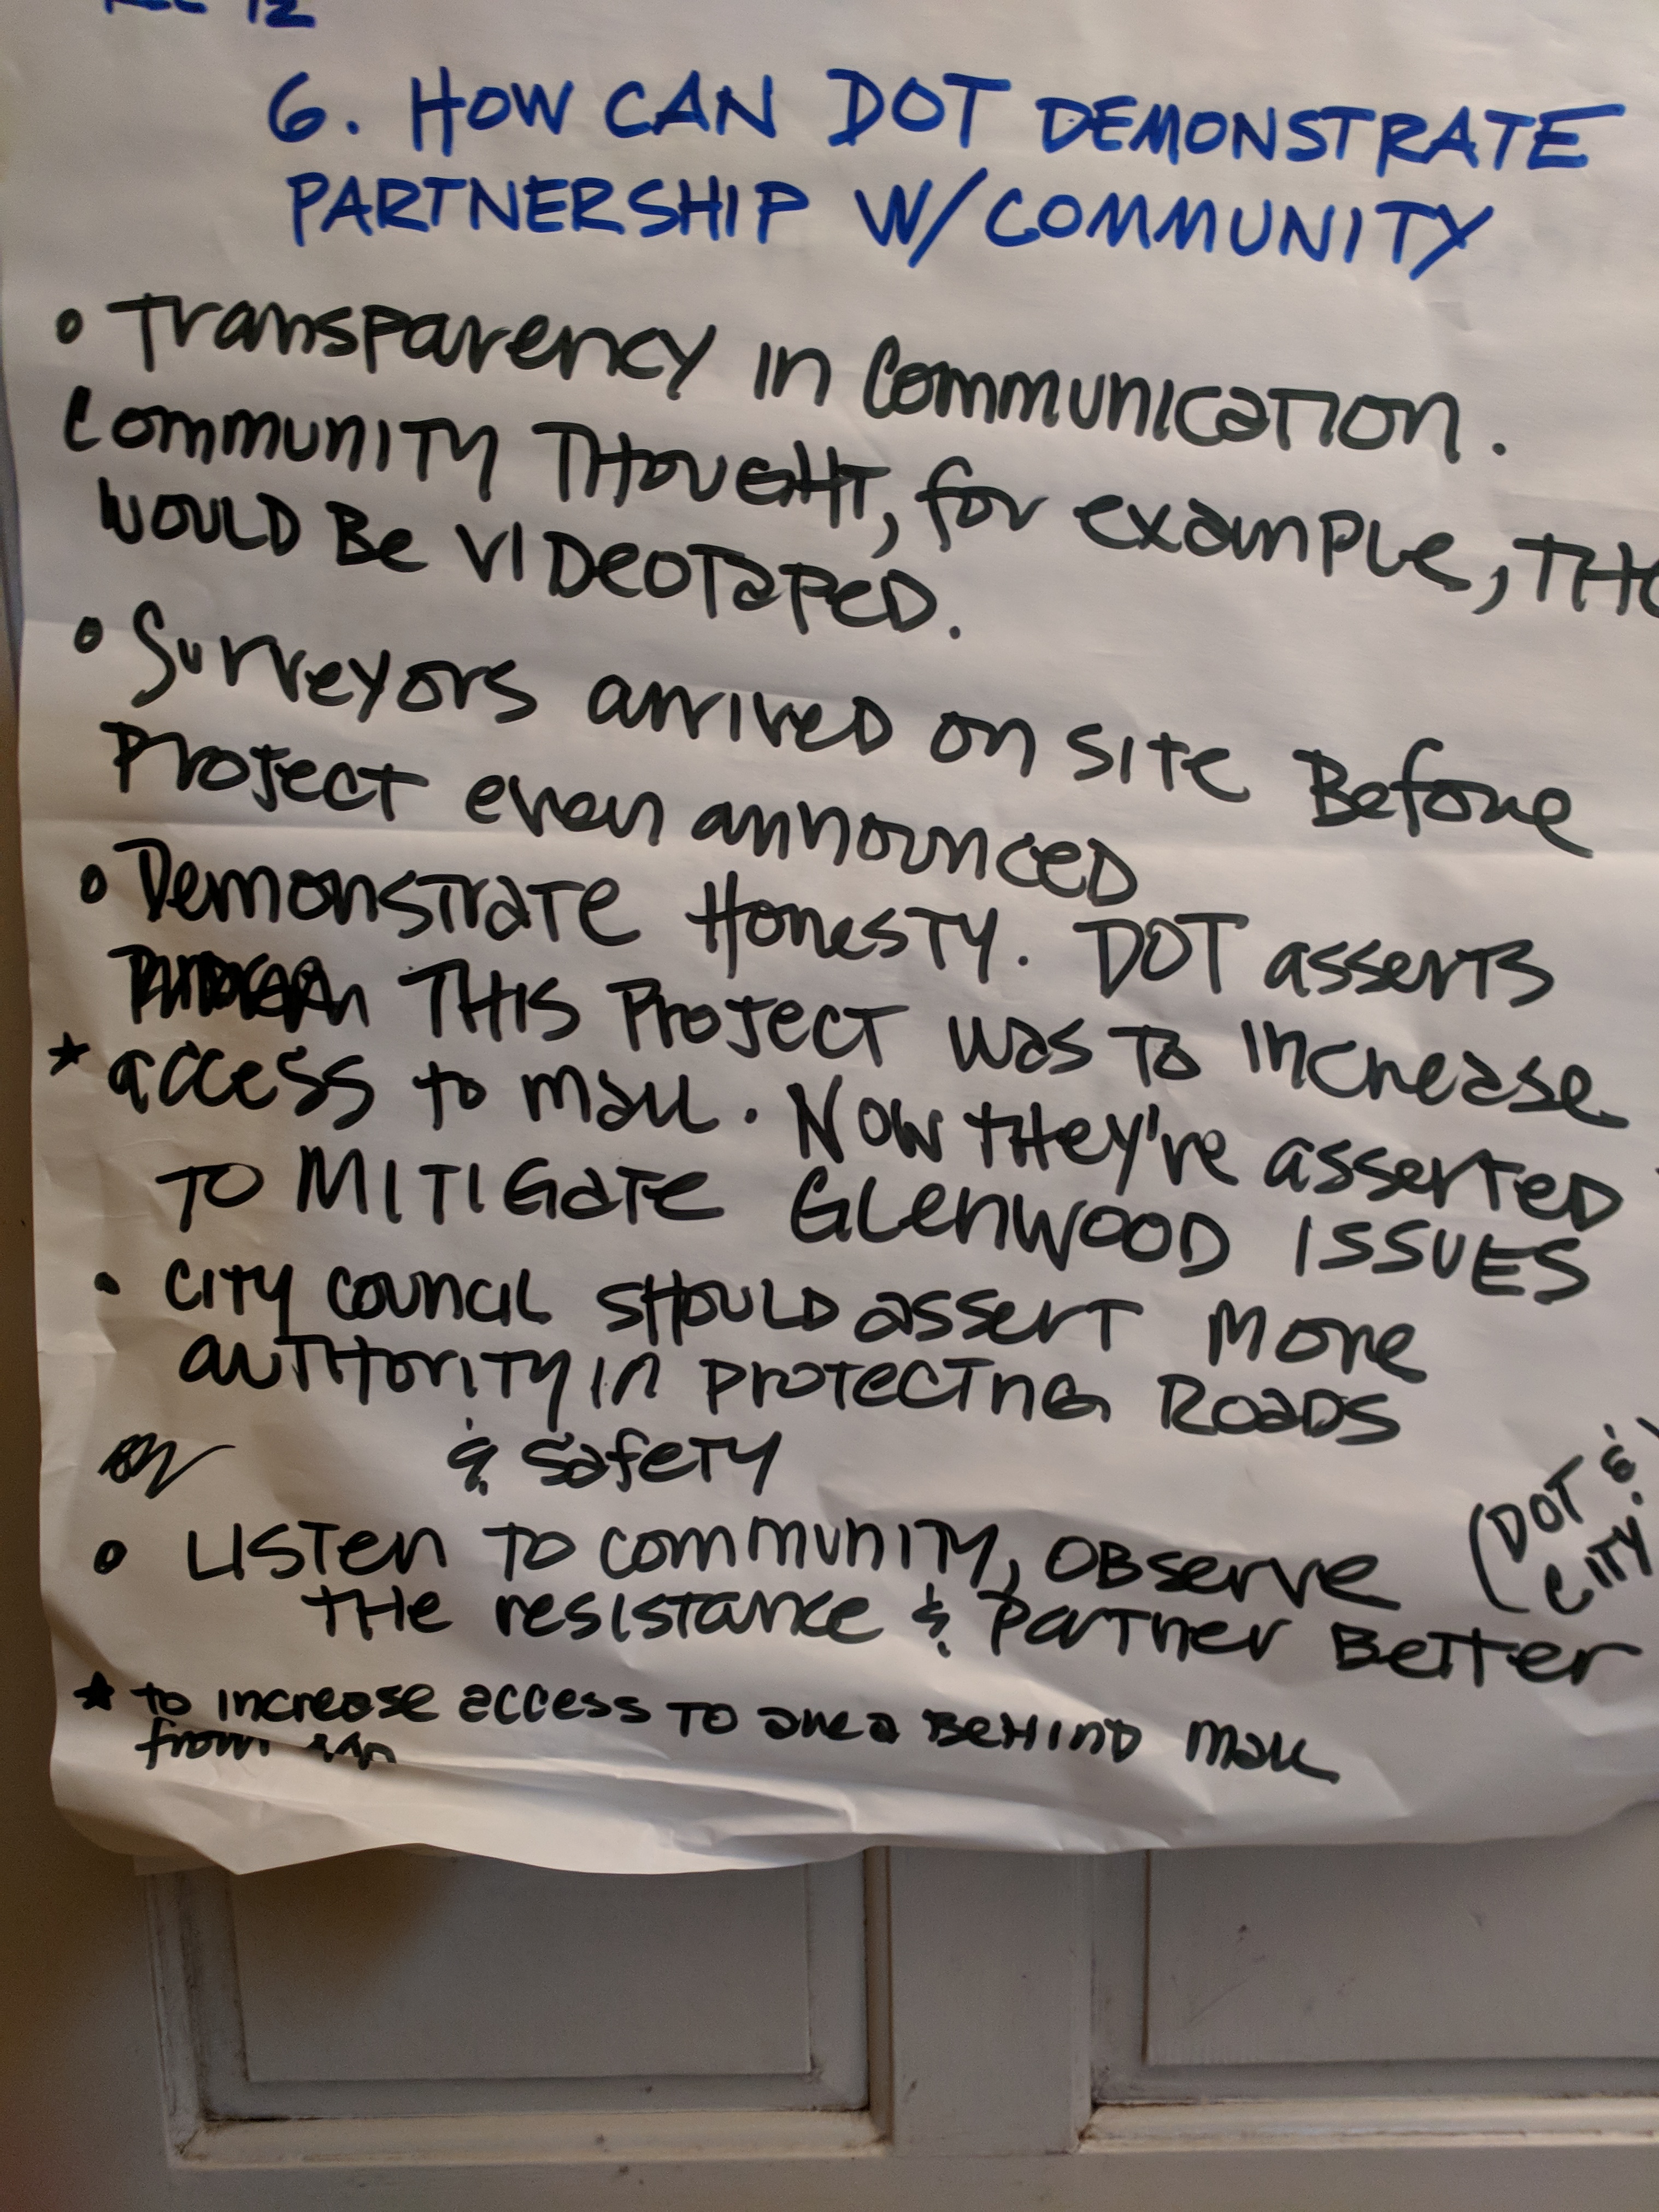 12
6. HOW CAN DOT DEMONSTRATE
PARTNERSHIP W/COMMUNITY
• Transparency in Communication.
Community Thought, for example, THO
WOULD Be VIDeoTaPeD.
• Surveyors arrived on site Before
Project even announced
• DemonstraTe HonesTy. DOT asserts
THIS Project was To Increase
* access to mall. Now they're asserted
TO MITIGaTe GLenWOOD ISSUES
• CITy Council SHOULD assert More
auTHoriTy in ProTecTing Roads
& SafeTy
• LISTen To communiTy, OBserve (DOT &
THe resistance & ParTner BeTTer CITY
* to increase access To area BeHIND Mall
from